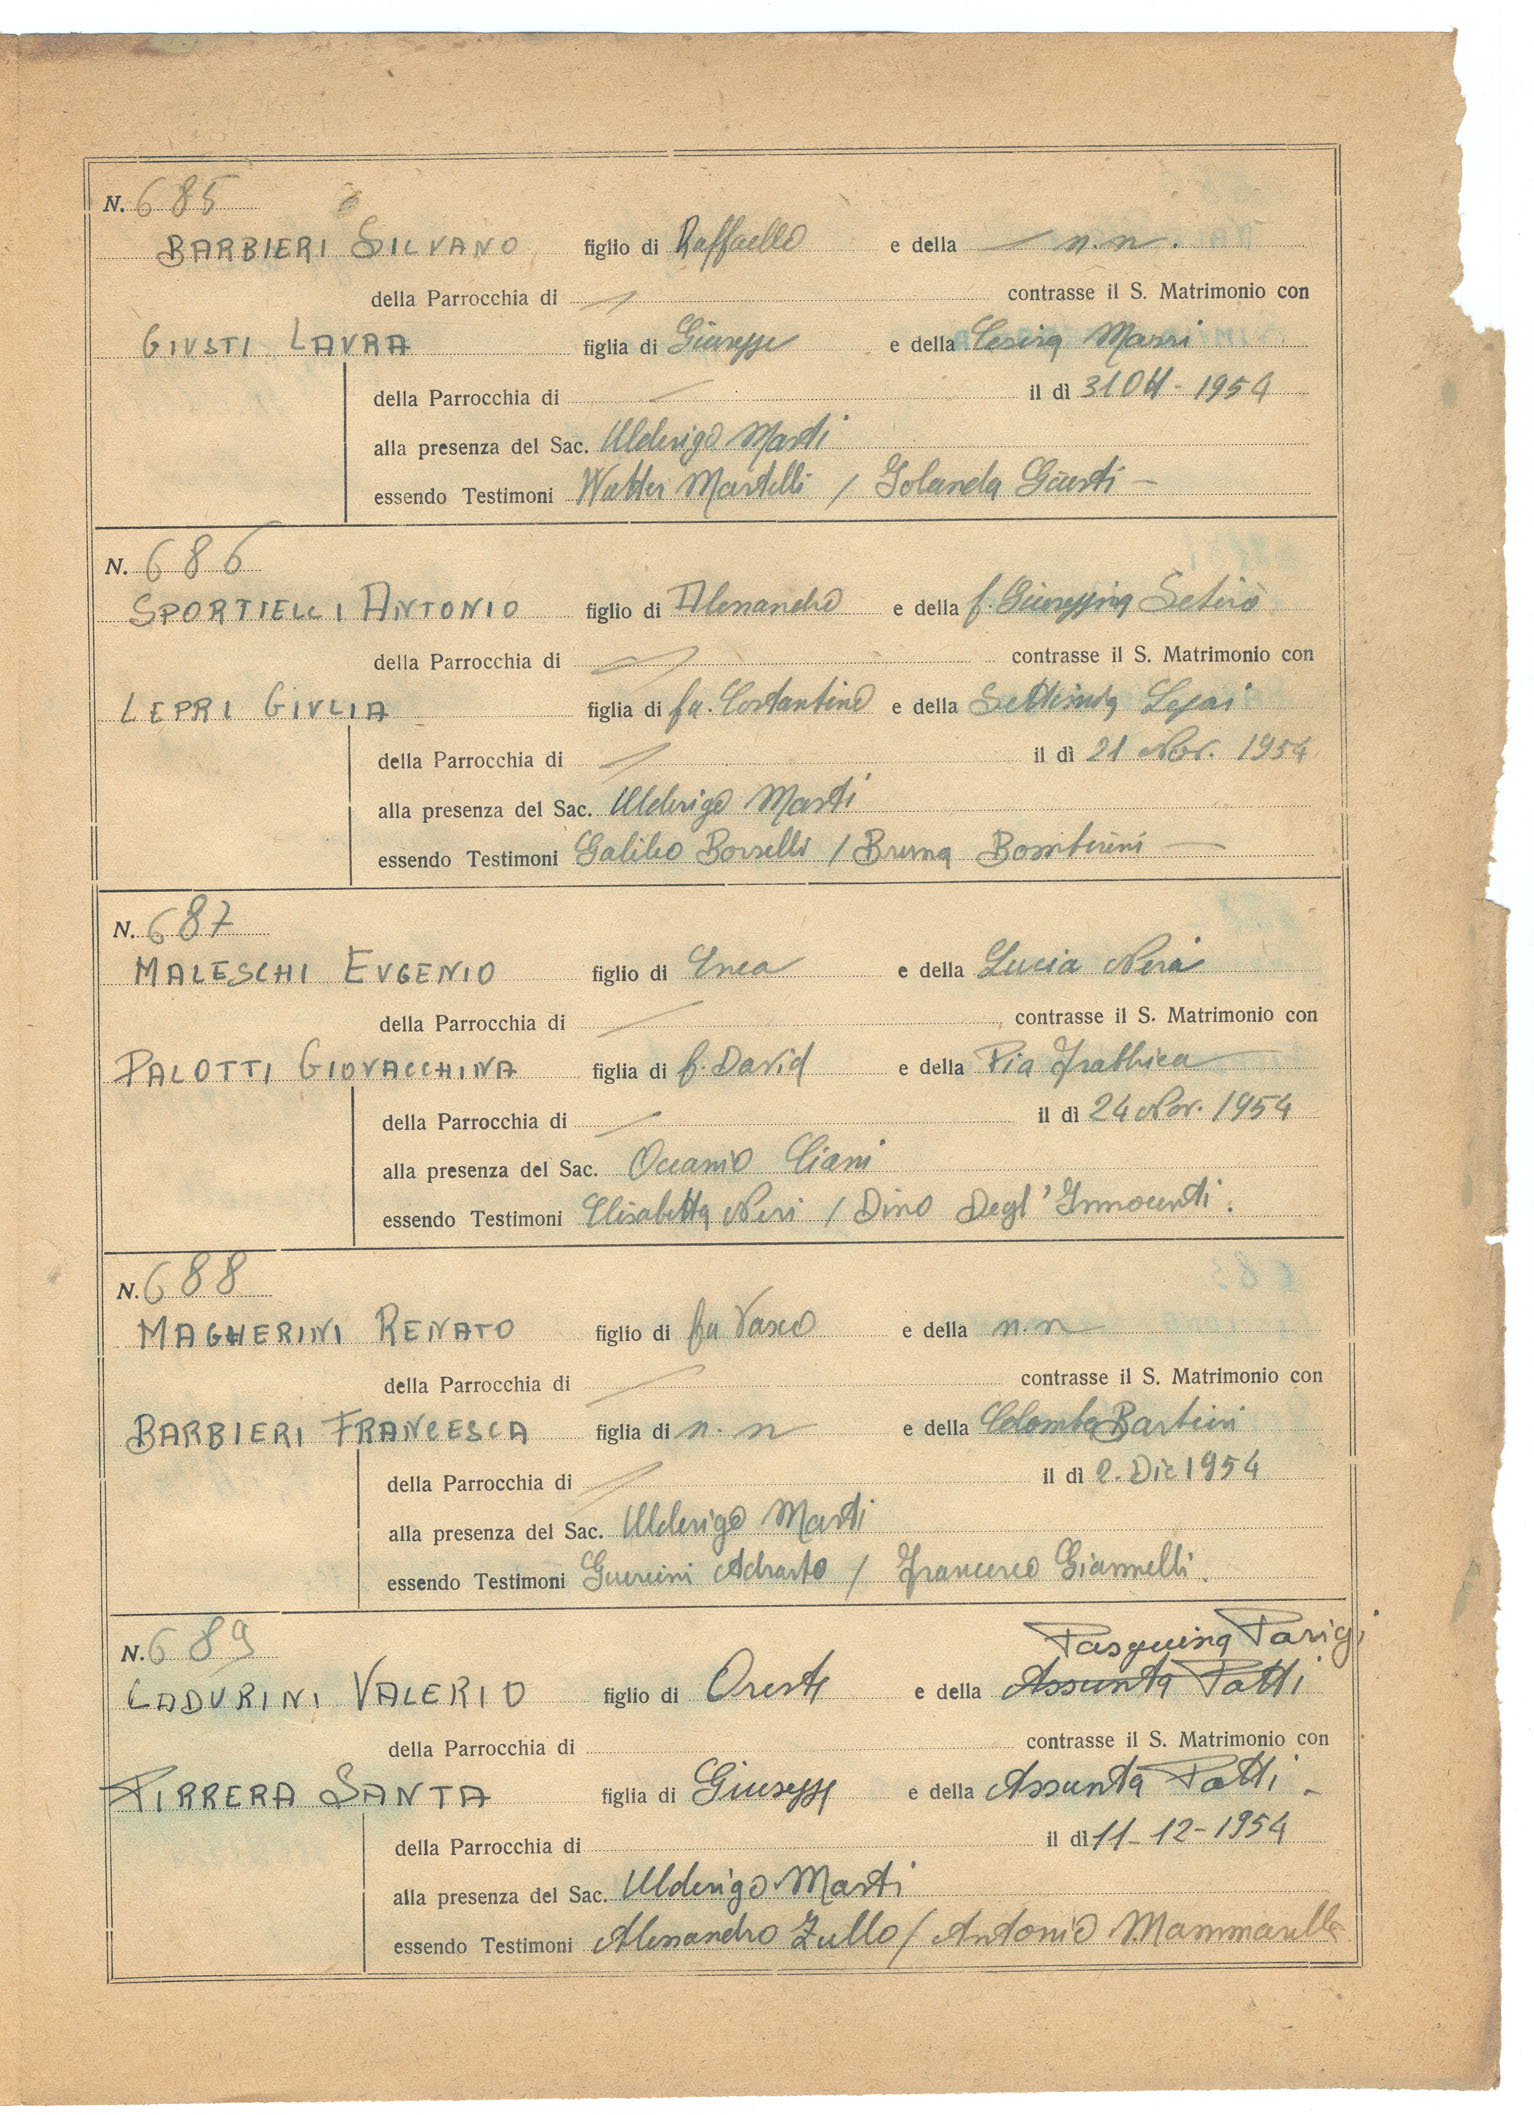 N. 685
BARBIERI SILVANO figlio di Raffaello e della — n.n.
della Parrocchia di / contrasse il S. Matrimonio con
GIUSTI LAURA figlia di Giuseppe e della Cesira Masri
della Parrocchia di / il dì 31 Ott - 1954
alla presenza del Sac. Ulderigo Masti
essendo Testimoni Walter Martelli / Iolanda Giusti —
N. 686
SPORTIELLI ANTONIO figlio di Alessandro e della f. Giuseppina
della Parrocchia di contrasse il S. Matrimonio con
LEPRI GIULIA figlia di fu. Costantino e della Settimia
della Parrocchia di / il dì 21 Nov. 1954
alla presenza del Sac. Ulderigo Masti
essendo Testimoni Galileo Borselli / Bruna —
N. 687
MALESCHI EUGENIO figlio di Enea e della Lucia Neri
della Parrocchia di / contrasse il S. Matrimonio con
PALOTTI GIOVACCHINA figlia di f. David e della Pia
della Parrocchia di / il dì 24 Nov. 1954
alla presenza del Sac. Oceanio Ciani
essendo Testimoni Elisabetta Neri / Dino Degl'Innocenti.
N. 688
MAGHERINI RENATO figlio di fu Vasco e della n.n
della Parrocchia di / contrasse il S. Matrimonio con
BARBIERI FRANCESCA figlia di n.n e della Colomba
della Parrocchia di / il dì 2. Dic 1954
alla presenza del Sac. Ulderigo Masti
essendo Testimoni Guercini Adrasto / Francesco Giannelli.
N. 689
Pasquina Parigi
LADURINI VALERIO figlio di Oreste e della Assunta Patti
della Parrocchia di contrasse il S. Matrimonio con
PIRRERA SANTA figlia di Giuseppe e della Assunta Patti -
della Parrocchia di il dì 11-12-1954
alla presenza del Sac. Ulderigo Masti
essendo Testimoni Alessandro Zullo / Antonio Mammarella